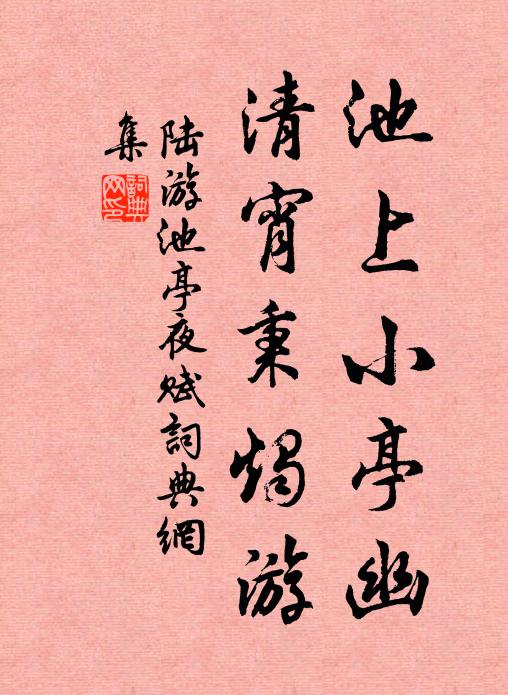 池上小亭幽
清宵秉烛游
陆游池亭夜赋詞典網
集
詞典
网印